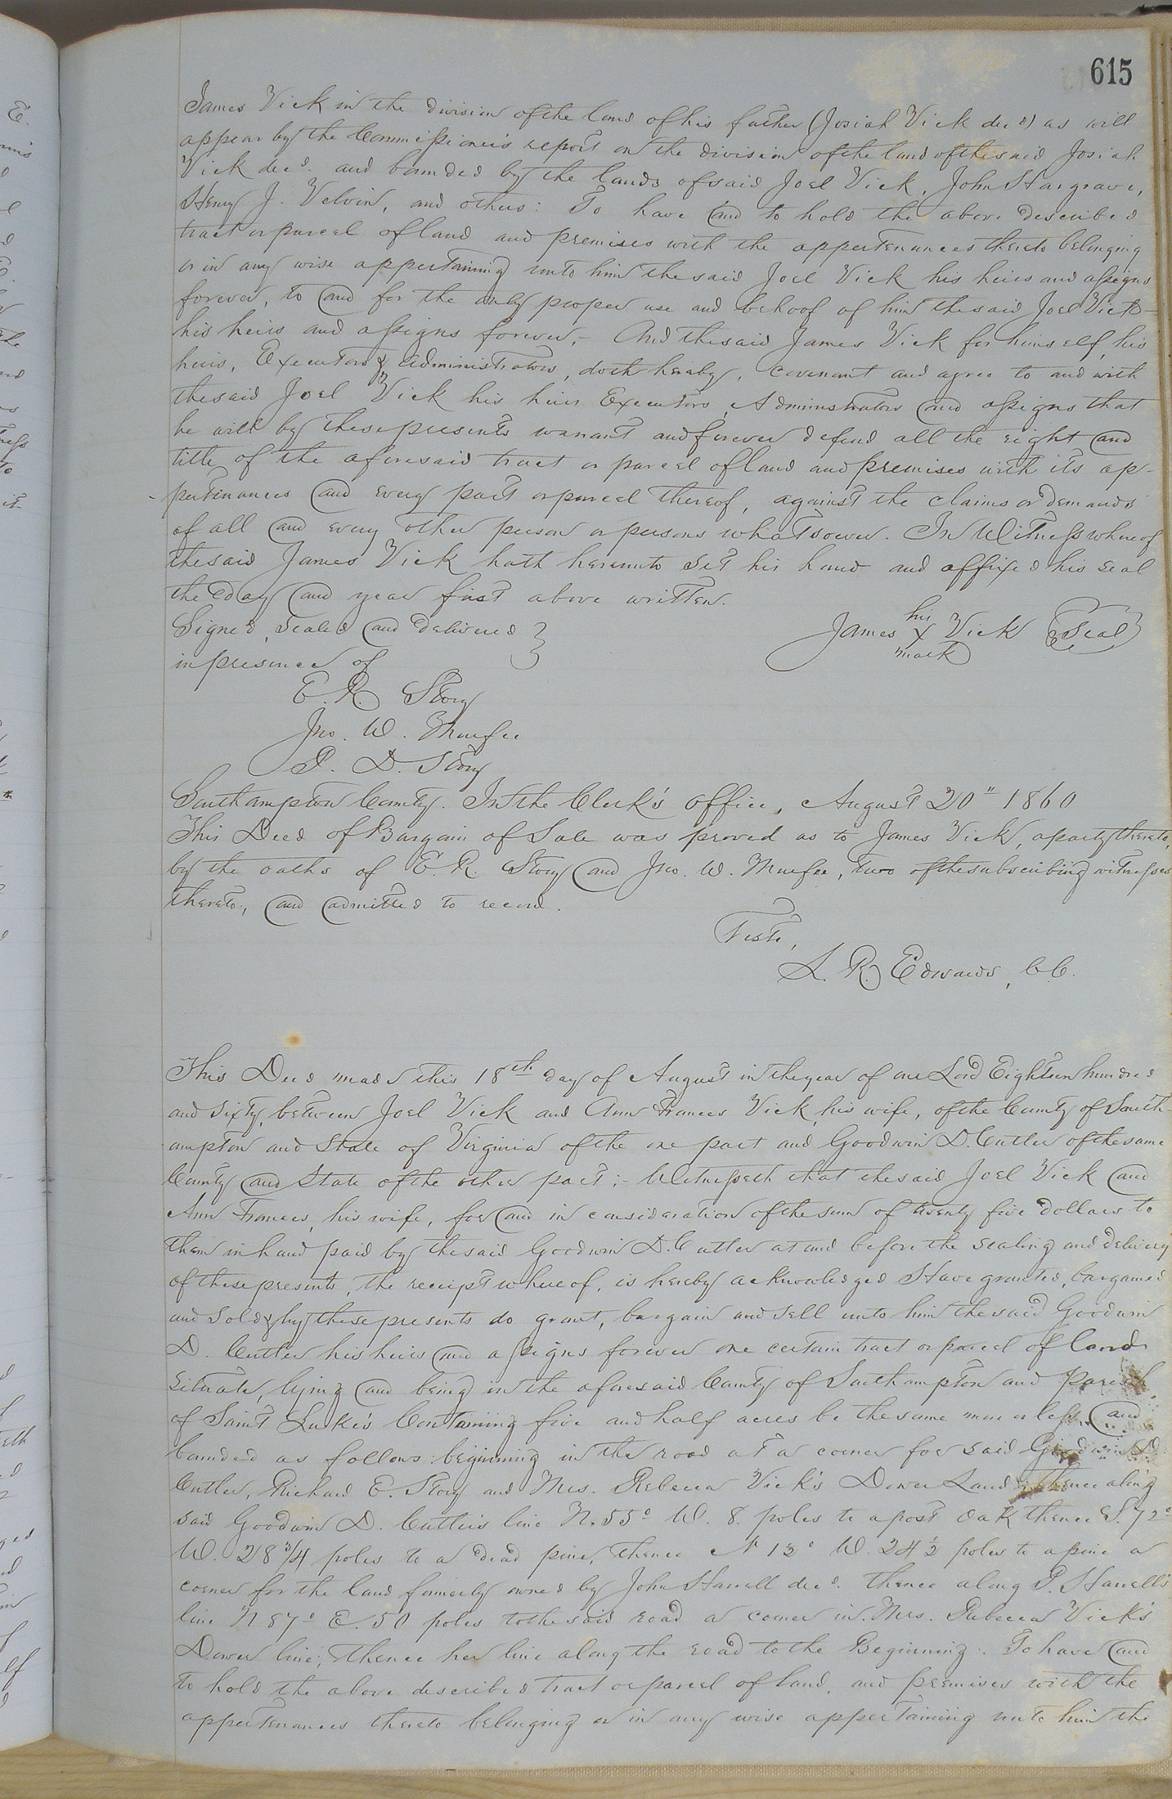 615
James Vick in the division of the land of his father (Josiah Vick decd) as will
appear by the Commissioner's report on the division of the land of the said Josiah
Vick decd. and bounded by the lands of said Joel Vick, John Hargrave,
Henry J. Velvin, and others: To have and to hold the above described
tract or parcel of land and premises with the appertenances thereto belonging
or in any wise appertaining unto him the said Joel Vick his heirs and assigns
forever, to and for the only proper use and behoof of him the said Joel Vick
his heirs and assigns forever,- And the said James Vick for himself, his
heirs, Executors & Administrators, doth hereby, covenant and agree to and with
the said Joel Vick his heirs Executors, Administrators and assigns that
he will by these presents warrant and forever defend all the right and
title of the aforesaid tract or parcel of land and premises with its ap-
pertenances and every part or parcel thereof, against the claims or demands
of all and every other person or persons whatsoever. In Witness whereof
the said James Vick hath hereunto set his hand and affixed his seal
the day and year first above written.
Signed, sealed and delivered }
in presence of
James his X mark Vick {Seal}
E. R. Story
Jno. W. Murfee
P. D. Story
Southampton County. In the Clerk's office, August 20" 1860
This Deed of Bargain of Sale was proved as to James Vick, a party thereto,
by the oaths of E. R. Story and Jno. W. Murfee, two of the subscribing witnesses
thereto, and admitted to record.
Teste,
L. R. Edwards, C.C.
This Deed made this 18th day of August in the year of our Lord Eighteen hundred
and sixty, between Joel Vick and Ann Frances Vick, his wife, of the County of South
ampton and State of Virginia of the one part and Goodwin D. Cutler of the same
County and State of the other part;- Witnesseth that the said Joel Vick and
Ann Frances, his wife, for and in consideration of the sum of twenty five dollars to
them in hand paid by the said Goodwin D. Cutler at and before the sealing and delivery
of these presents, the receipt whereof, is hereby acknowledged Have granted, bargained
and sold & by these presents do grant, bargain and sell unto him the said Goodwin
D. Cutler his heirs and assigns forever one certain tract or parcel of land
situate, lying and being in the aforesaid County of Southampton and Parish
of Saint Luke's Containing five and half acres be the same more or less, and
bounded as follows: beginning in the road at a corner for said Goodwin D.
Cutler, Richard E. Story and Mrs. Rebecca Vick's Dower Land thence along
said Goodwin D. Cutler's line N. 55° W. 8 poles to a post oak thence S. 72°
W. 28 3/4 poles to a dead pine, thence N 13° W. 24 1/2 poles to a pine a
corner for the land formerly owned by John Harrell decd. thence along P. Harrell's
line N 87° E. 50 poles to the said road a corner in Mrs. Rebecca Vick's
Dower line; thence her line along the road to the Beginning. To have and
to hold the above described tract or parcel of land, and premises with the
appertenances thereto belonging or in any wise appertaining unto him the